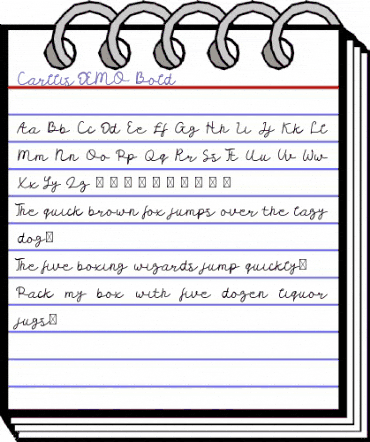 Carttis DEMO Bold
Aa Bb Cc Dd Ee Ff Gg Hh Ii Jj Kk Ll
Mm Nn Oo Pp Qq Rr Ss Tt Uu Vv Ww
Xx Yy Zz □ □ □ □ □ □ □ □ □ □
The quick brown fox jumps over the lazy
dog□
The five boxing wizards jump quickly□
Pack my box with five dozen liquor
jugs□